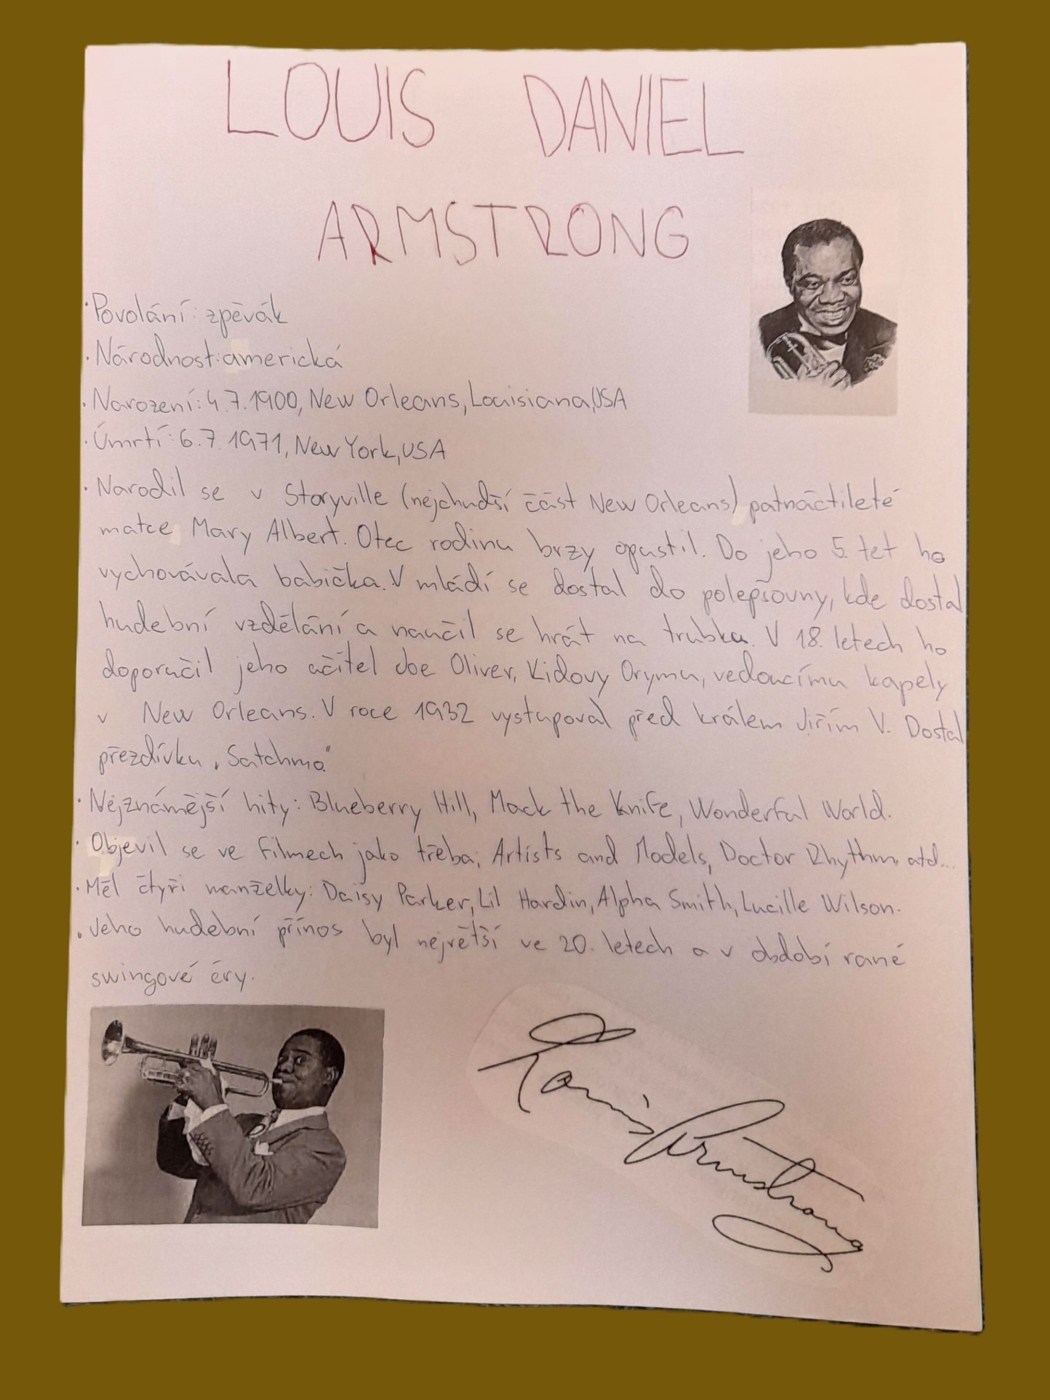 LOUIS DANIEL
ARMSTRONG
· Povolání: zpěvák
· Národnost: americká
· Narození: 4.7.1900, New Orleans, Louisiana, USA
· Úmrtí: 6.7.1971, New York, USA
· Narodil se v Storyville (nejchudší část New Orleans) patnáctileté
matce Mary Albert. Otec rodinu brzy opustil. Do jeho 5. let ho
vychovávala babička. V mládí se dostal do polepšovny, kde dostal
hudební vzdělání a naučil se hrát na trubku. V 18. letech ho
doporučil jeho učitel Joe Oliver, Kidovy Orymu, vedoucímu kapely
v New Orleans. V roce 1932 vystupoval před králem Jiřím V. Dostal
přezdívku „Satchmo"
· Nejznámější hity: Blueberry Hill, Mack the Knife, Wonderful World.
· Objevil se ve filmech jako třeba; Artists and Models, Doctor Rhythm, atd...
· Měl čtyři manželky: Daisy Parker, Lil Hardin, Alpha Smith, Lucille Wilson.
· Jeho hudební přínos byl největší ve 20. letech a v období rané
swingové éry.
Louis Armstrong